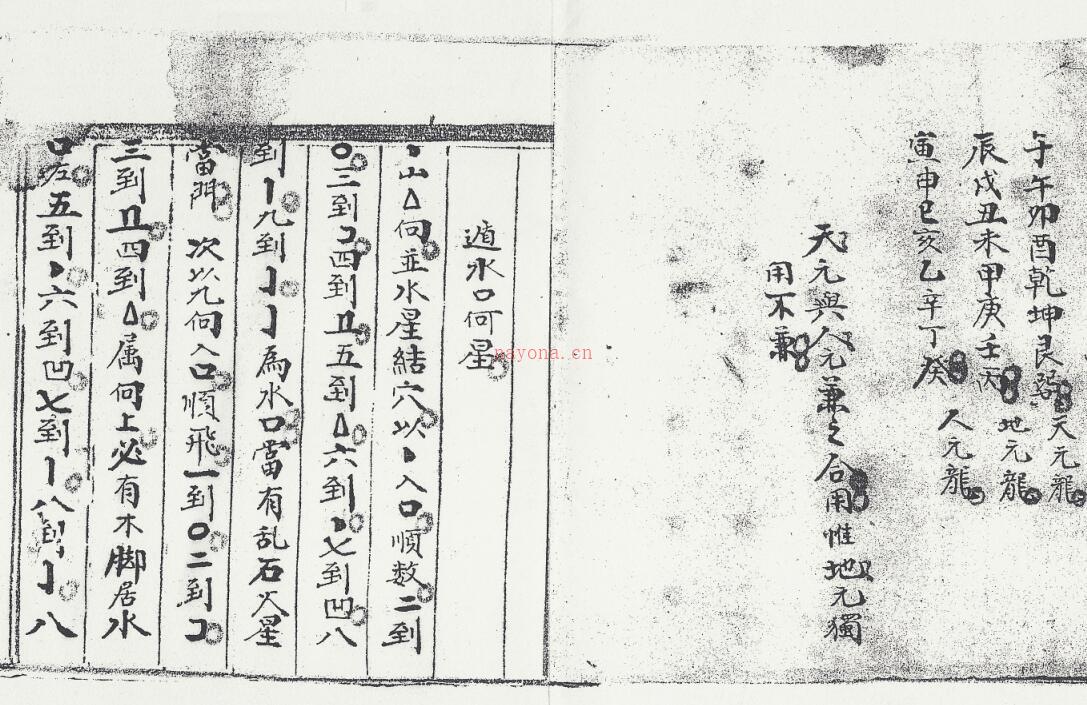 子午卯酉乾坤艮巽 天元龍
辰戌丑未甲庚壬丙 地元龍
寅申巳亥乙辛丁癸 人元龍
天元與人元兼之合用惟地元獨
用不兼
遁水口何星
丶山△何並水星結穴以丶入口順数二到
〇三到コ四到彐五到△六到丶七到凹八
到丨九到亅亅為水口當有乱石火星
當門 次以九何入口順飛一到〇二到コ
三到彐四到△属何上必有木脚居水
口左五到丶六到凹七到丨八到亅八
nayona.cn